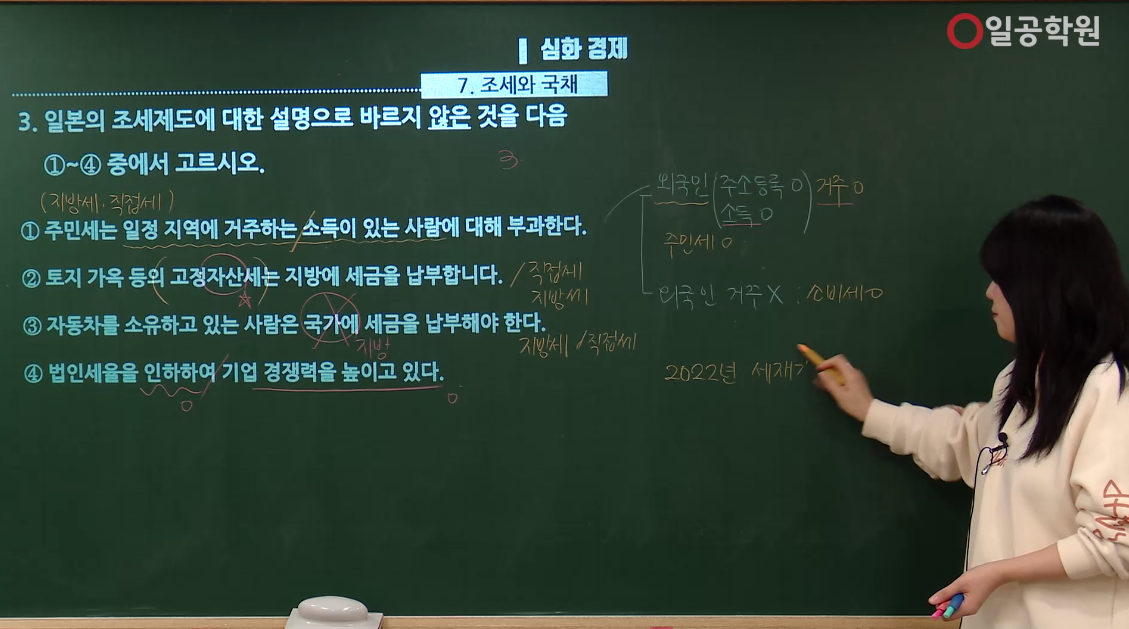 일공학원
심화 경제
7. 조세와 국채
3. 일본의 조세제도에 대한 설명으로 바르지 않은 것을 다음
①~④ 중에서 고르시오.
3
(지방세·직접세)
① 주민세는 일정 지역에 거주하는 소득이 있는 사람에 대해 부과한다.
② 토지 가옥 등의 고정자산세는 지방에 세금을 납부합니다.
직접세
지방세
③ 자동차를 소유하고 있는 사람은 국가에 세금을 납부해야 한다.
지방
지방세 직접세
④ 법인세율을 인하하여 기업 경쟁력을 높이고 있다.
외국인 (주소등록 O) 거주 O
소득 O
주민세 O
외국인 거주 X : 소비세 O
2022년 세재